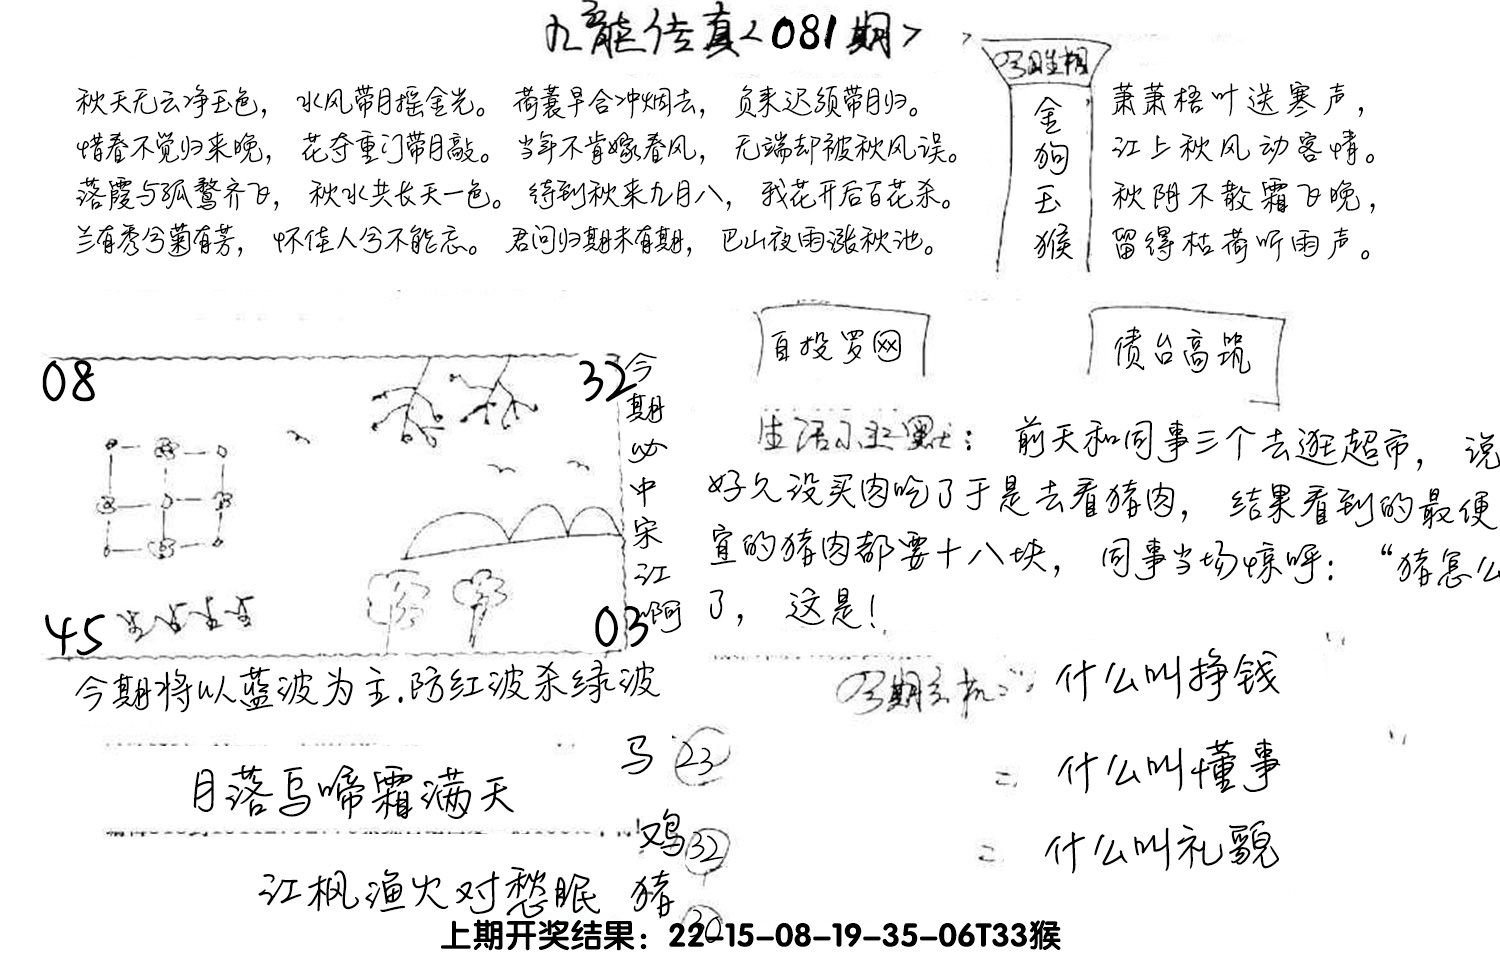 九龙传真<081期>
秋天无云净玉色，水风带月摇金光。荷蓑早合冲烟去，负耒迟须带月归。
惜春不觉归来晚，花夺重门带月敲。当年不肯嫁春风，无端却被秋风误。
落霞与孤鹜齐飞，秋水共长天一色。待到秋来九月八，我花开后百花杀。
兰有秀兮菊有芳，怀佳人兮不能忘。君问归期未有期，巴山夜雨涨秋池。
金
狗
玉
猴
萧萧梧叶送寒声，
江上秋风动客情。
秋阴不散霜飞晚，
留得枯荷听雨声。
自投罗网
债台高筑
08
32
45
03
今期必中宋江啊
生活幽默：前天和同事三个去逛超市，说
好久没买肉吃了于是去看猪肉，结果看到的最便
宜的猪肉都要十八块，同事当场惊呼：“猪怎么
了，这是！
今期将以蓝波为主.防红波杀绿波
今期玄机：什么叫挣钱
什么叫懂事
什么叫礼貌
月落乌啼霜满天
江枫渔火对愁眠
马 23
鸡 32
猪 30
上期开奖结果：22-15-08-19-35-06T33猴